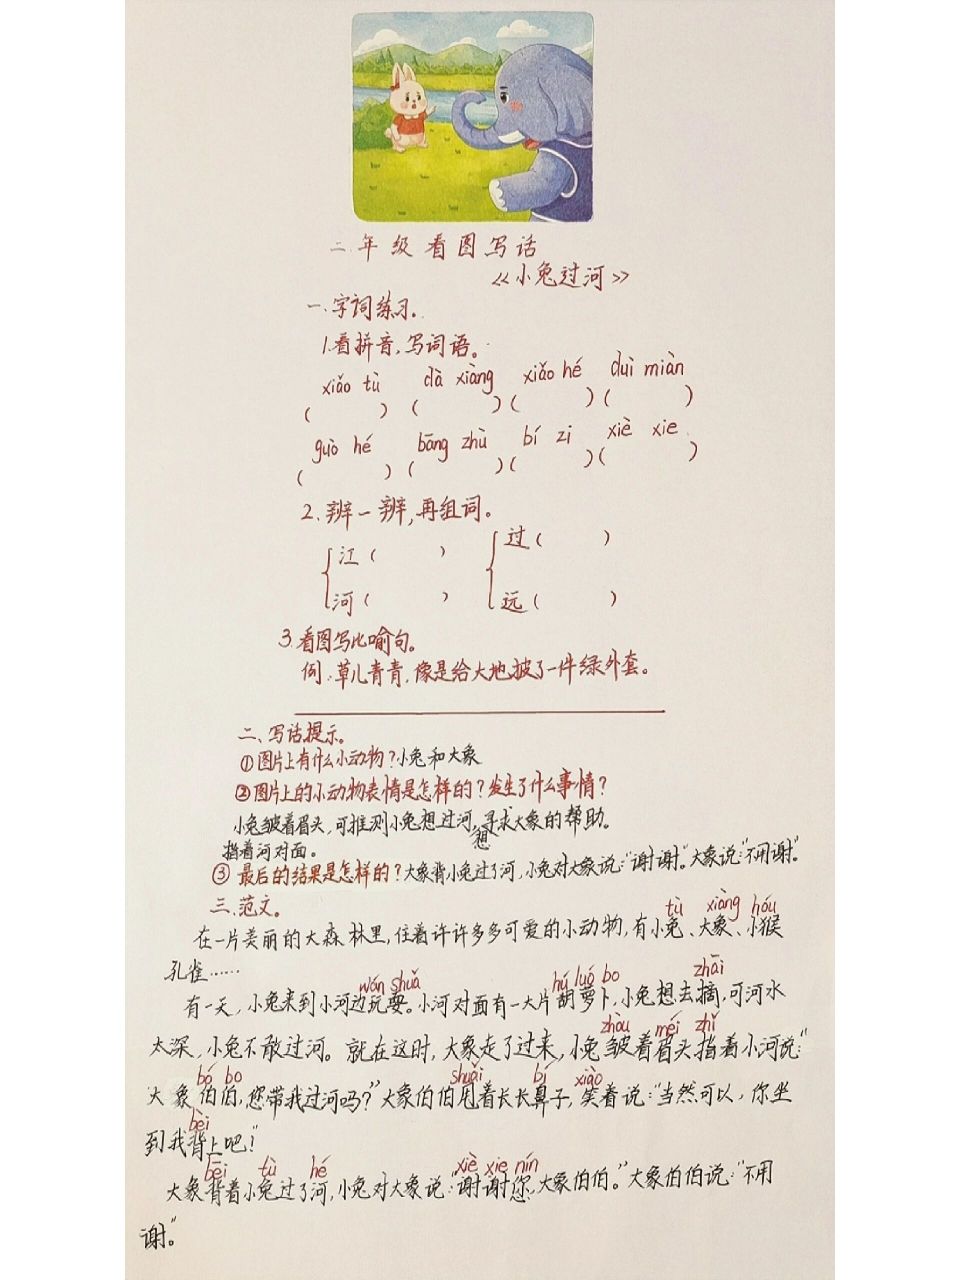 二年级看图写话
《小兔过河》
一.字词练习.
1.看拼音,写词语。
xiǎo tù dà xiàng xiǎo hé duì miàn
( ) ( ) ( ) ( )
guò hé bāng zhù bí zi xiè xie
( ) ( ) ( ) ( )
2.辨一辨,再组词。
江( ) 过( )
河( ) 远( )
3.看图写比喻句。
例:草儿青青,像是给大地披了一件绿外套。
二、写话提示。
①图片上有什么小动物?小兔和大象
②图片上的小动物表情是怎样的?发生了什么事情?
小兔皱着眉头,可推测小兔想过河,寻求大象的帮助。
想
指着河对面。
③最后的结果是怎样的?大象背小兔过了河,小兔对大象说:“谢谢”。大象说:“不用谢”。
三.范文。
tù xiàng hóu
在一片美丽的大森林里,住着许许多多可爱的小动物,有小兔、大象、小猴
孔雀……
wán shuǎ hú luó bo zhāi
有一天,小兔来到小河边玩耍。小河对面有一大片胡萝卜,小兔想去摘,可河水
zhòu méi zhǐ
太深,小兔不敢过河。就在这时,大象走了过来,小兔皱着眉头指着小河说:“
bó bo shuǎi bí xiào
大象伯伯,您带我过河吗?”大象伯伯甩着长长鼻子,笑着说:“当然可以,你坐
bèi
到我背上吧!”
bēi tù hé xiè xie nín
大象背着小兔过了河,小兔对大象说:“谢谢您,大象伯伯。”大象伯伯说:“不用
谢”。